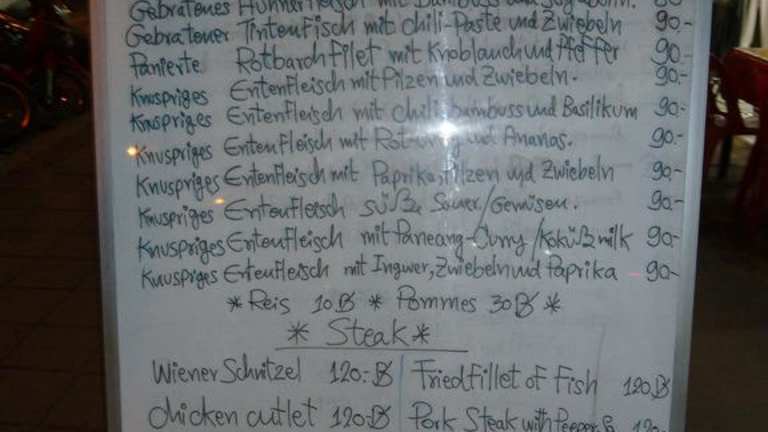 Gebratenes Hühnerfleisch mit Bambuss und 90.-
Gebratener Tintenfisch mit chili-Paste und Zwiebeln 90.-
Panierte Rotbarchfilet mit Knoblauch und Pfeffer 90.-
Knuspriges Entenfleisch mit Pilzen und Zwiebeln. 90.-
Knuspriges Entenfleisch mit chili, bambuss und Basilikum 90.-
Knuspriges Entenfleisch mit und Ananas. 90.-
Knuspriges Entenfleisch mit Paprika, Pilzen und Zwiebeln 90.-
Knuspriges Entenfleisch süße Sauer/Gemüsen. 90.-
Knuspriges Entenfleisch mit Paneang-Curry/Kokußmilk 90.-
Knuspriges Entenfleisch mit Ingwer, Zwiebeln und Paprika - 90.-
* Reis 10 ฿ * Pommes 30 ฿ *
* Steak *
Wiener Schnitzel 120.-฿ Fried fillet of Fish 120.฿
chicken cutlet 120.฿ Pork Steak with Pepper 120.-